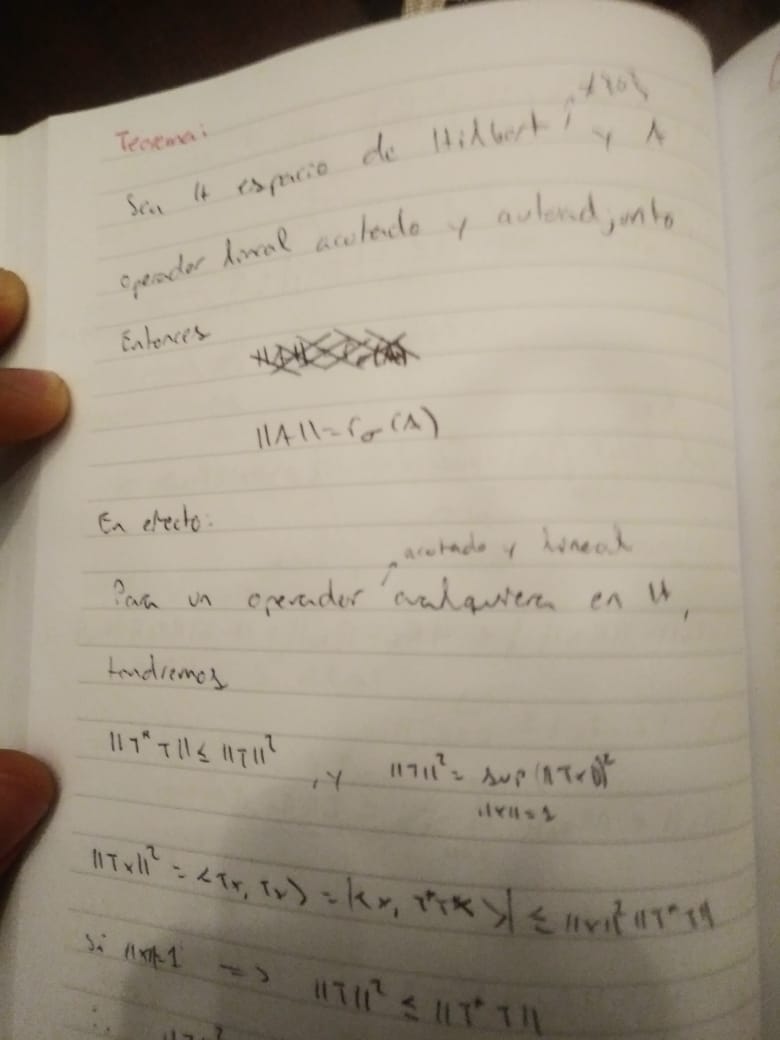 Teorema:
Sea H espacio de Hilbert, ≠{0}, y A
operador lineal acotado y autoadjunto
Entonces
||A|| = r_σ(A)
En efecto:
Para un operador acotado y lineal cualquiera en H,
tendremos
||T*T|| ≤ ||T||², y ||T||² = sup(||Tx||)²
||x||=1
||Tx||² = <Tx, Tx> = |<x, T*Tx>| ≤ ||x||² ||T*T||
Si ||x||=1 => ||T||² ≤ ||T*T||
∴